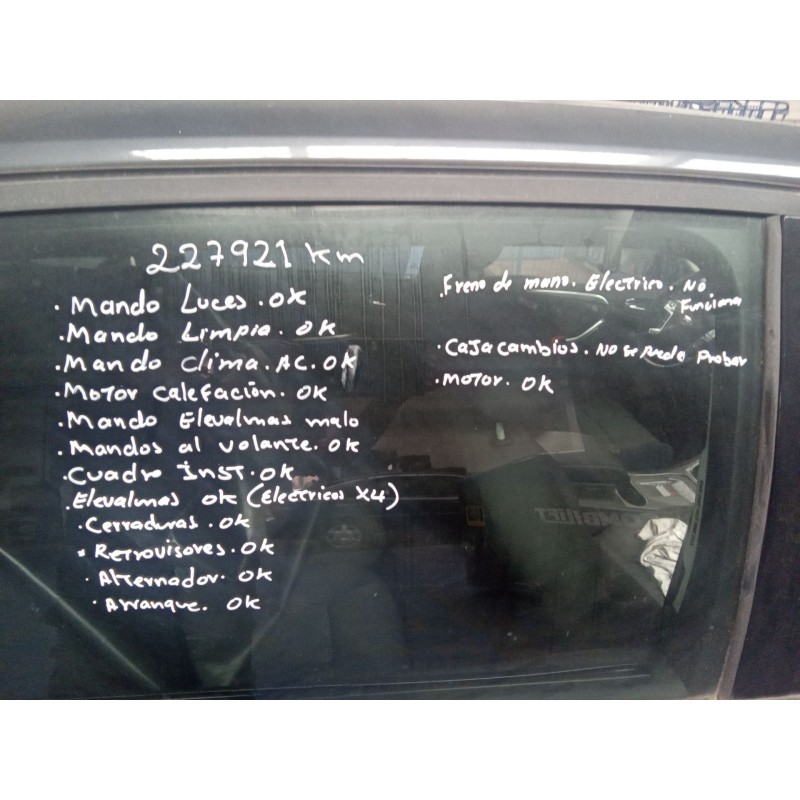 227921 km
. Mando Luces. OK
. Mando Limpia. OK
. Mando Clima. AC. OK
. Motor Calefación. OK
. Mando Elevalmas malo
. Mandos al volante. OK
. Cuadro inst. OK
. Elevalmas OK (Electricos x4)
. Cerraduras. OK
. Retrovisores. OK
. Alternador. OK
. Arranque. OK
. Freno de mano. Electrico. No
Funciona
. Caja cambios. No se puede Probar
. Motor. OK